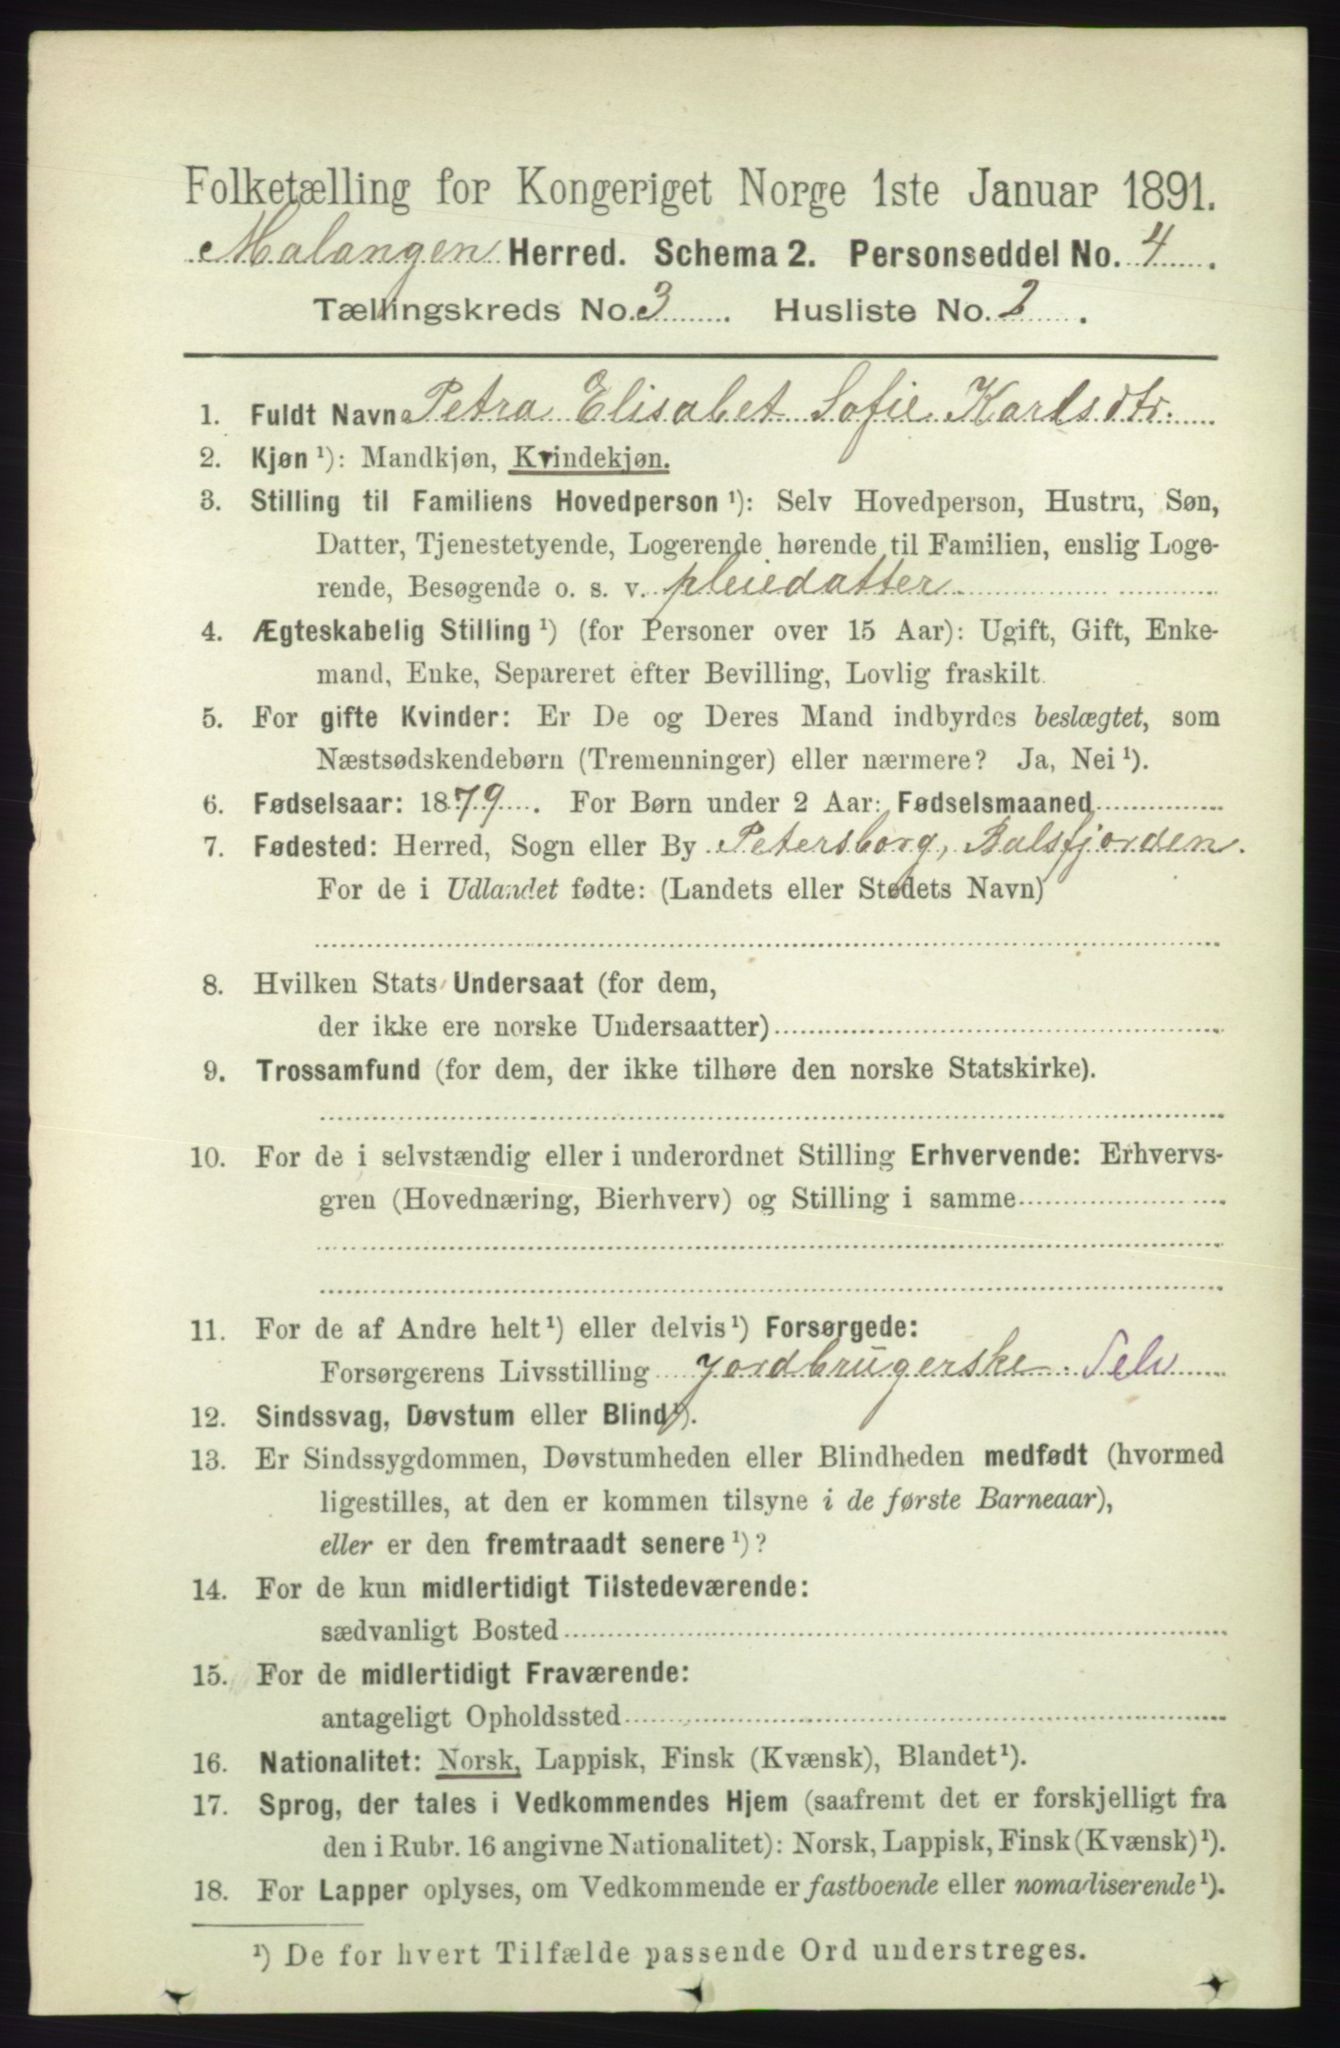 Folketælling for Kongeriget Norge 1ste Januar 1891.
Malangen Herred. Schema 2. Personseddel No. 4.
Tællingskreds No. 3. Husliste No. 2.
1. Fuldt Navn Petra Elisabet Sofie Karlsdtr.
2. Kjøn ¹): Mandkjøn, Kvindekjøn.
3. Stilling til Familiens Hovedperson ¹): Selv Hovedperson, Hustru, Søn,
Datter, Tjenestetyende, Logerende hørende til Familien, enslig Loge-
rende, Besøgende o. s. v. pleiedatter
4. Ægteskabelig Stilling ¹) (for Personer over 15 Aar): Ugift, Gift, Enke-
mand, Enke, Separeret efter Bevilling, Lovlig fraskilt.
5. For gifte Kvinder: Er De og Deres Mand indbyrdes beslægtet, som
Næstsødskendebørn (Tremenninger) eller nærmere? Ja, Nei ¹).
6. Fødselsaar: 1879. For Børn under 2 Aar: Fødselsmaaned
7. Fødested: Herred, Sogn eller By Petersborg, Balsfjorden.
For de i Udlandet fødte: (Landets eller Stedets Navn)
8. Hvilken Stats Undersaat (for dem,
der ikke ere norske Undersaatter)
9. Trossamfund (for dem, der ikke tilhøre den norske Statskirke).
10. For de i selvstændig eller i underordnet Stilling Erhvervende: Erhvervs-
gren (Hovednæring, Bierhverv) og Stilling i samme
11. For de af Andre helt ¹) eller delvis ¹) Forsørgede:
Forsørgerens Livsstilling jordbrugerske. Selv
12. Sindssvag, Døvstum eller Blind ¹).
13. Er Sindssygdommen, Døvstumheden eller Blindheden medfødt (hvormed
ligestilles, at den er kommen tilsyne i de første Barneaar),
eller er den fremtraadt senere ¹)?
14. For de kun midlertidigt Tilstedeværende:
sædvanligt Bosted
15. For de midlertidigt Fraværende:
antageligt Opholdssted
16. Nationalitet: Norsk, Lappisk, Finsk (Kvænsk), Blandet ¹).
17. Sprog, der tales i Vedkommendes Hjem (saafremt det er forskjelligt fra
den i Rubr. 16 angivne Nationalitet): Norsk, Lappisk, Finsk (Kvænsk) ¹).
18. For Lapper oplyses, om Vedkommende er fastboende eller nomadiserende ¹).
¹) De for hvert Tilfælde passende Ord understreges.